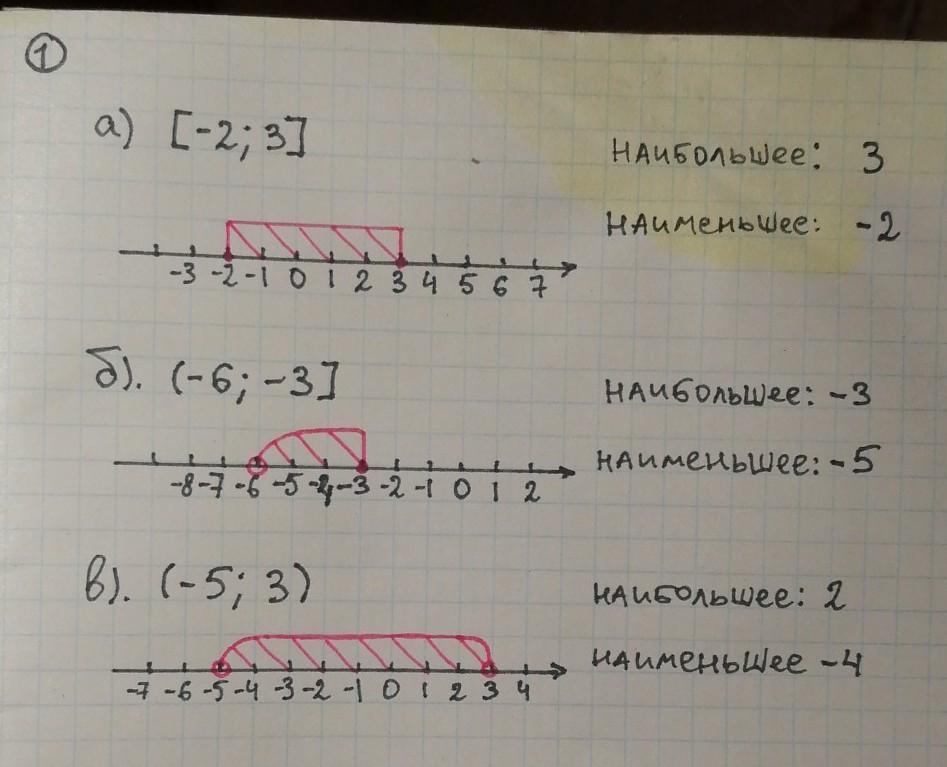 1
а) [-2; 3]
НАИБОЛЬШЕЕ: 3
НАИМЕНЬШЕЕ: -2
-3 -2 -1 0 1 2 3 4 5 6 7
б). (-6; -3]
НАИБОЛЬШЕЕ: -3
НАИМЕНЬШЕЕ: -5
-8 -7 -6 -5 -4 -3 -2 -1 0 1 2
в). (-5; 3)
НАИБОЛЬШЕЕ: 2
НАИМЕНЬШЕЕ -4
-7 -6 -5 -4 -3 -2 -1 0 1 2 3 4